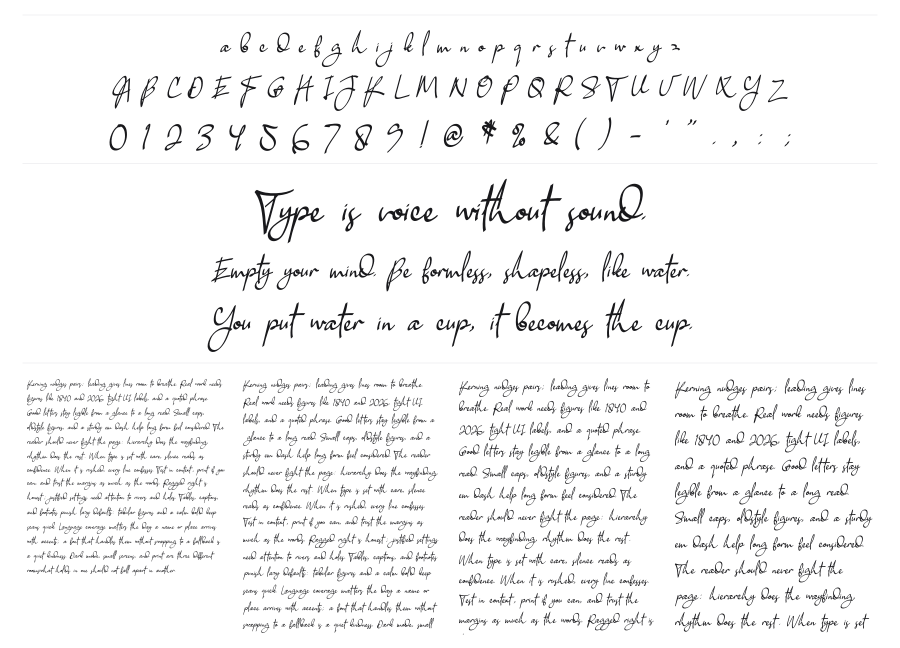 a b c d e f g h i j k l m n o p q r s t u v w x y z
A B C D E F G H I J K L M N O P Q R S T U V W X Y Z
0 1 2 3 4 5 6 7 8 9 ! @ * % & ( ) - ' " . , : ;
Type is voice without sound.
Empty your mind. Be formless, shapeless, like water.
You put water in a cup, it becomes the cup.
Kerning nudges pairs; leading gives lines room to breathe. Real work needs
figures like 1840 and 2026, tight UI labels, and a quoted phrase.
Good letters stay legible from a glance to a long read. Small caps,
oldstyle figures, and a sturdy em dash help long form feel considered. The
reader should never fight the page: hierarchy does the wayfinding,
rhythm does the rest. When type is set with care, silence reads as
confidence. When it is rushed, every line confesses. Test in context, print if you
can, and trust the margins as much as the words. Ragged right is
honest; justified settings need attention to rivers and holes. Tables, captions,
and footnotes punish lazy defaults: tabular figures and a calm bold keep
scans quick. Language coverage matters the day a name or place arrives
with accents; a font that handles them without snapping to a fallback is
a quiet kindness. Dark mode, small screens, and print are three different
rooms;what holds in one should not fall apart in another.
Kerning nudges pairs; leading gives lines room to breathe.
Real work needs figures like 1840 and 2026, tight UI
labels, and a quoted phrase. Good letters stay legible from a
glance to a long read. Small caps, oldstyle figures, and a
sturdy em dash help long form feel considered. The reader
should never fight the page: hierarchy does the wayfinding,
rhythm does the rest. When type is set with care, silence
reads as confidence. When it is rushed, every line confesses.
Test in context, print if you can, and trust the margins as
much as the words. Ragged right is honest; justified settings
need attention to rivers and holes. Tables, captions, and footnotes
punish lazy defaults: tabular figures and a calm bold keep
scans quick. Language coverage matters the day a name or
place arrives with accents; a font that handles them without
snapping to a fallback is a quiet kindness. Dark mode, small
Kerning nudges pairs; leading gives lines room to
breathe. Real work needs figures like 1840 and
2026, tight UI labels, and a quoted phrase.
Good letters stay legible from a glance to a long
read. Small caps, oldstyle figures, and a sturdy
em dash help long form feel considered. The
reader should never fight the page: hierarchy
does the wayfinding, rhythm does the rest.
When type is set with care, silence reads as
confidence. When it is rushed, every line confesses.
Test in context, print if you can, and trust the
margins as much as the words. Ragged right is
Kerning nudges pairs; leading gives lines
room to breathe. Real work needs figures
like 1840 and 2026, tight UI labels,
and a quoted phrase. Good letters stay
legible from a glance to a long read.
Small caps, oldstyle figures, and a sturdy
em dash help long form feel considered.
The reader should never fight the
page: hierarchy does the wayfinding,
rhythm does the rest. When type is set